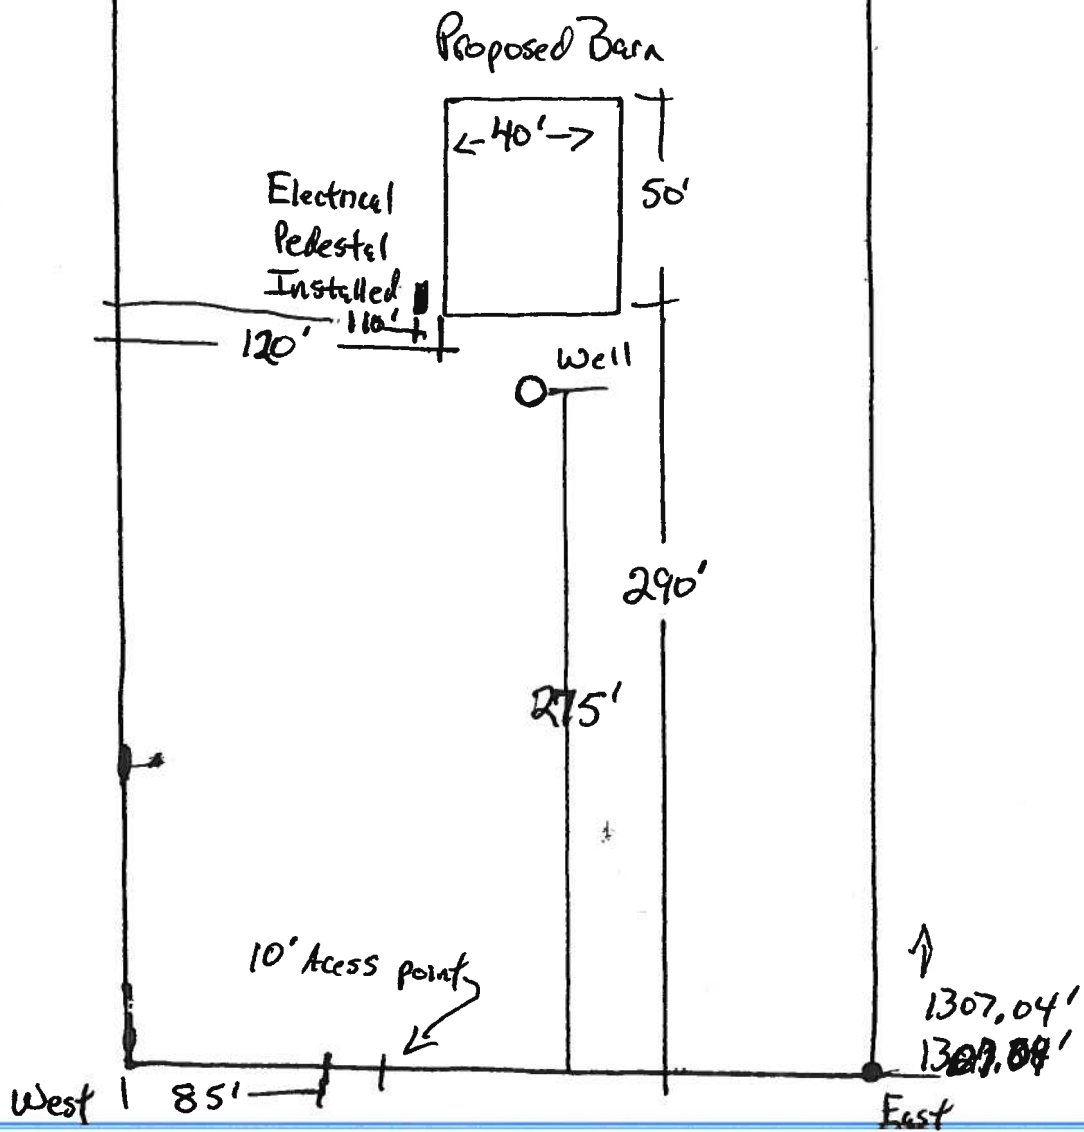 Proposed Barn
←40'→
50'
Electrical
Pedestal
Installed
110'
120'
Well
290'
275'
10' Acess point
1307.04'
West
85'
East